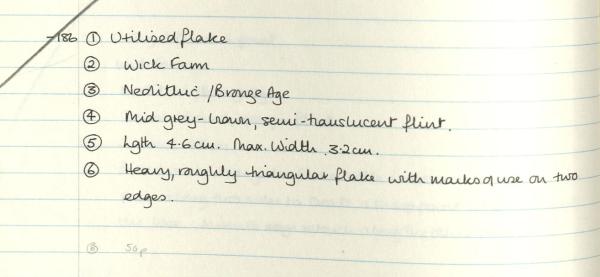 -186 ① Utilised flake
② Wick Farm
③ Neolithic / Bronze Age
④ Mid grey-brown, semi-translucent flint.
⑤ Lgth 4.6cm. Max. Width 3.2cm.
⑥ Heavy, roughly triangular flake with marks of use on two
edges.
⑧ 50p